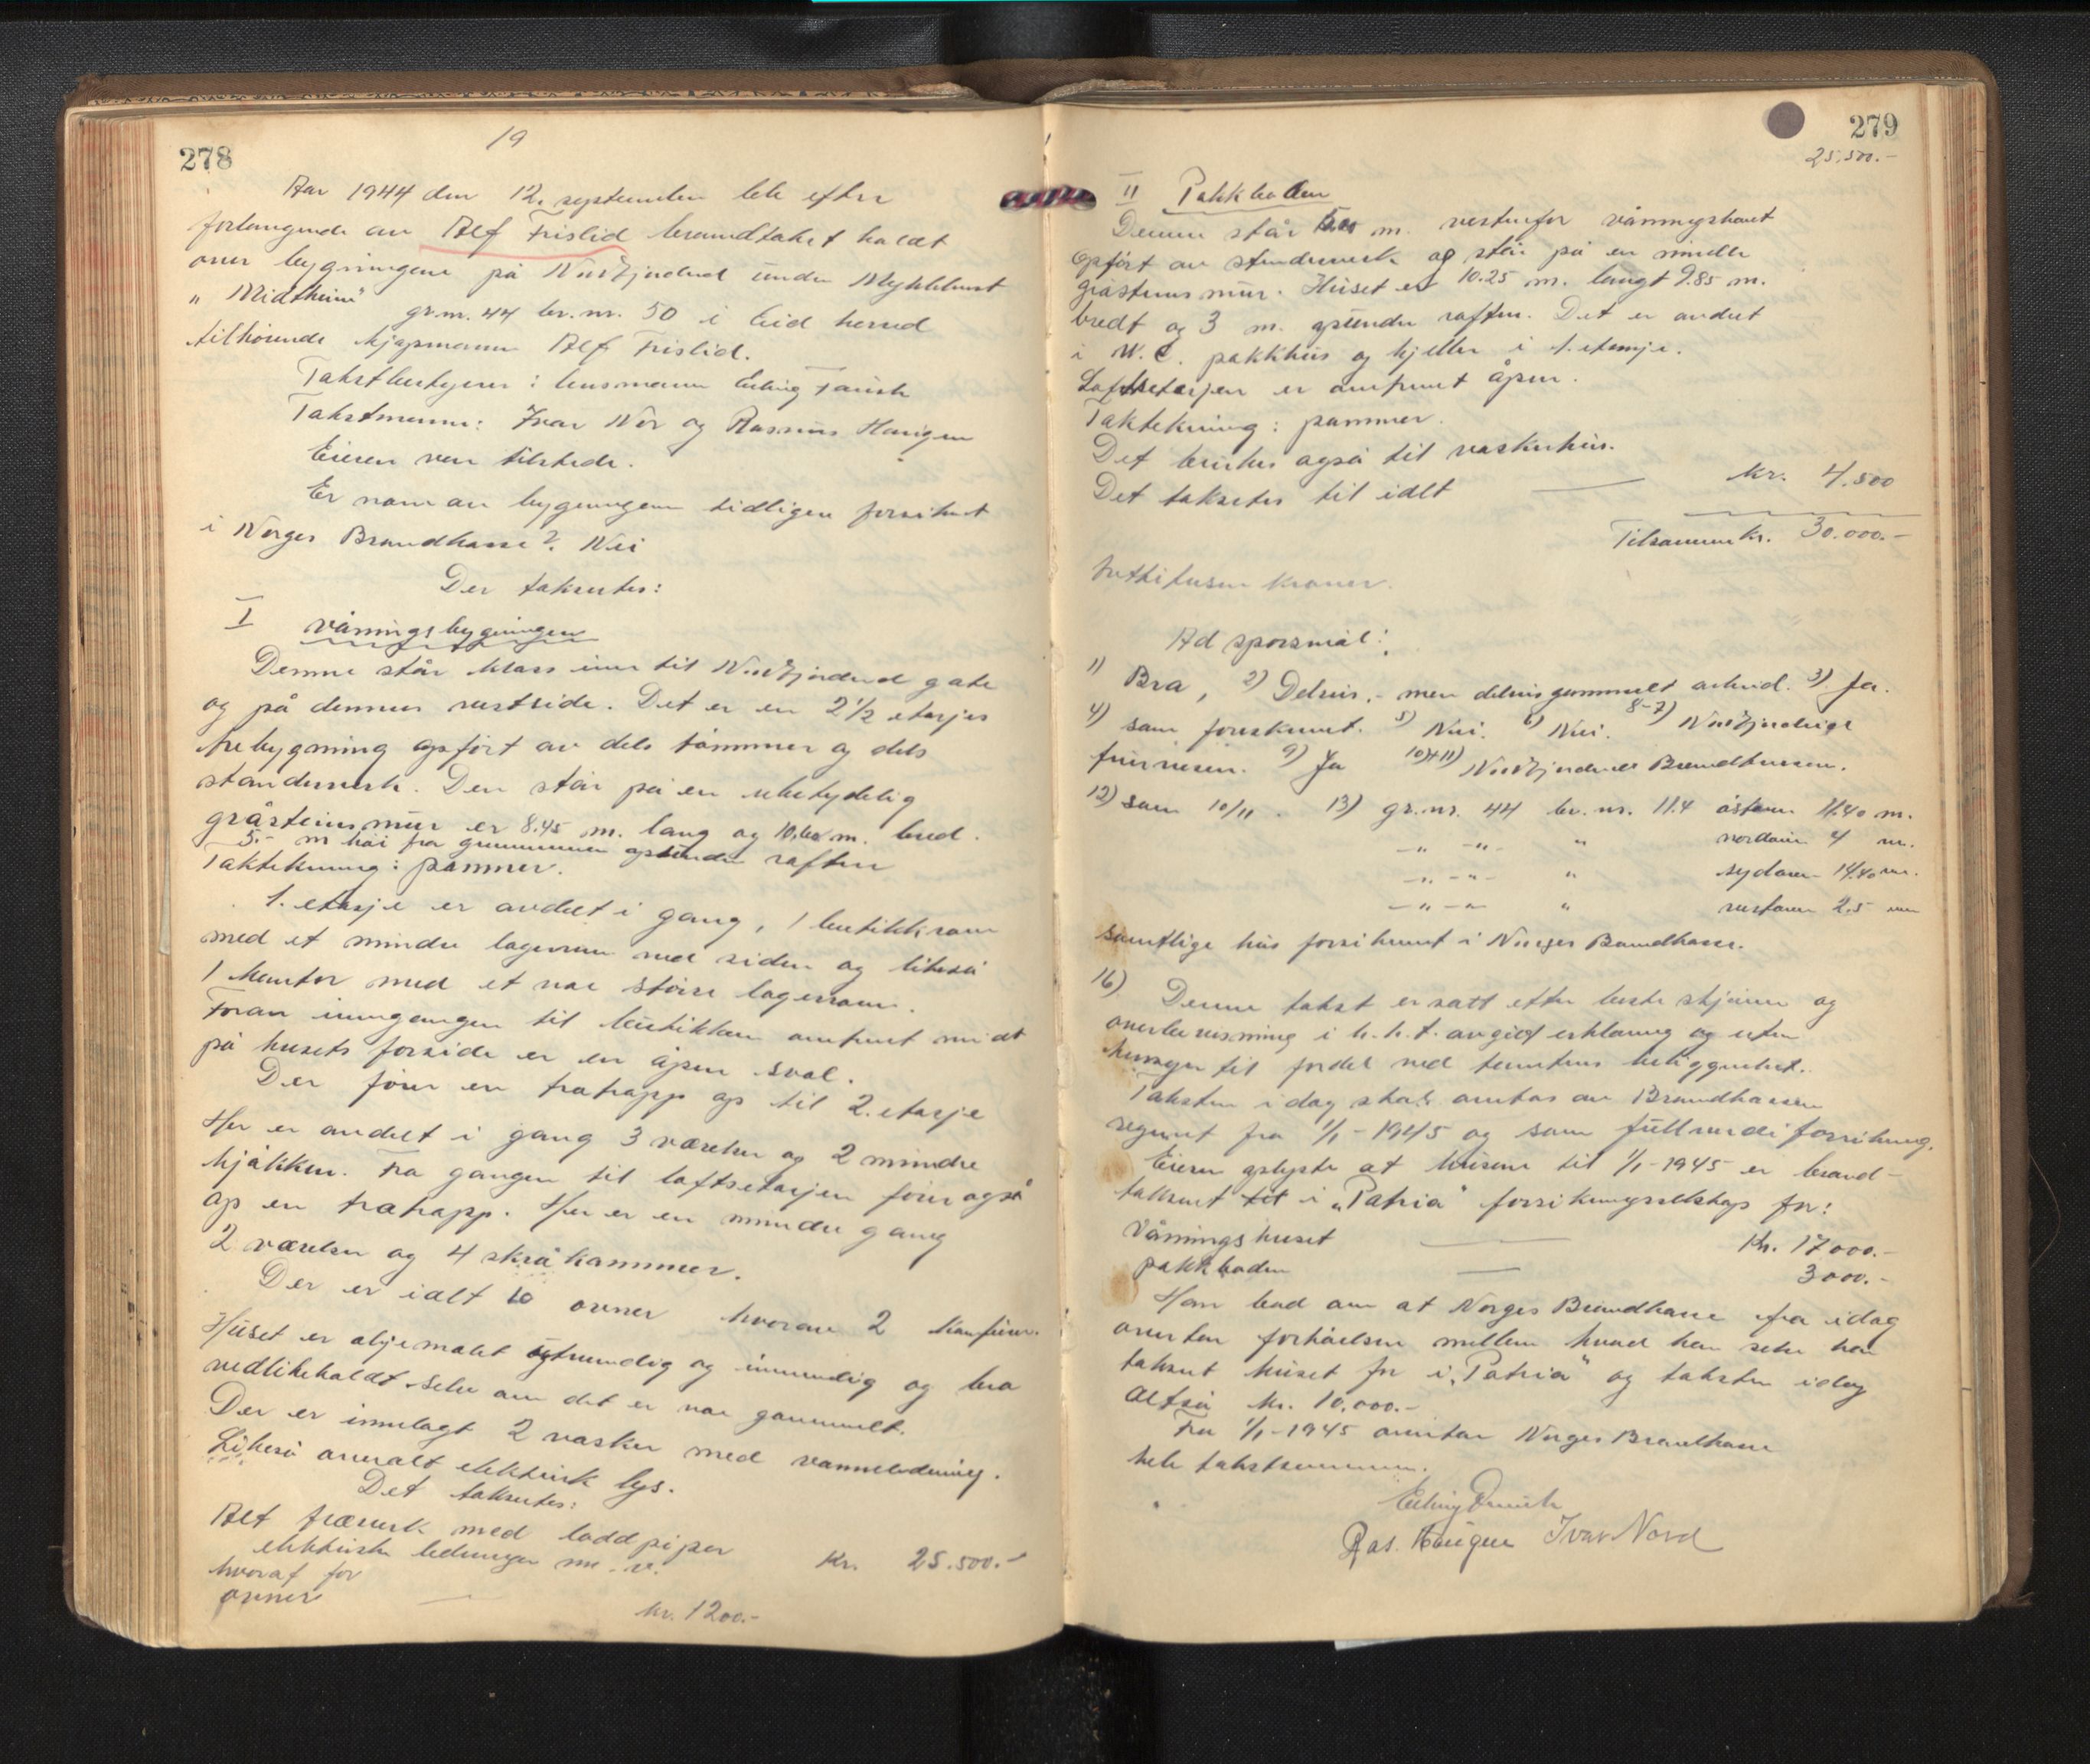 278
19
Aar 1944 den 12. september ble efter
forlangende av Alf Frislid brandtakst holdt
over bygningene på Nordfjordeid under Myklebust
"Midtheim" gr.nr. 44 br.nr. 50 i Eid herred
tilhørende kjøpmann Alf Frislid.
Takstbestyrer: lensmann Erling
Takstmenn: Ivar Nor og Rasmus Haugen
Eieren var tilstede.
Er noen av bygningene tidligere forsikret
i Norges Brandkasse? Nei
Der takseres:
I våningsbygningen
Denne står klass inn til Nordfjordeid gate
og på dennes vestside. Det er en 2 1/2 etasjes
trebygning opført av dels tømmer og dels
standerverk. Den står på en ubetydelig
gråsteinsmur er 8.45 m. lang og 10.60 m. bred.
5.- m høi fra grunnmuren op under raften
Taktekning: panner.
1. etasje er avdelt i gang, 1 butikkrom
med et mindre lagerrom ved siden og likeså
1 kontor med et noe større lagerrom.
Foran inngangen til butikken omtrent midt
på husets forside er en åpen sval.
Der fører en tratrapp op til 2. etasje
Her er avdelt i gang 3 værelser og 2 mindre
kjøkken. Fra gangen til loftsetasjen fører også
op en tratrapp. Her er en mindre gang
2 værelser og 4 skråkammer.
Der er ialt 10 ovner hvorav 2 komfurer.
Huset er oljemalet utvendig og innvendig og bra
vedlikeholdt selv om det er noe gammelt.
Der er innlagt 2 vasker med vannledning.
Likeså overalt elektrisk lys.
Det takseres:
Alt træverk med loddpiper
elektriske ledninger m. v. Kr. 25.500.-
hvoraf for
ovner — kr. 1200.-
279
25.500.-
II Pakkboden
Denne står 5.00 m. vestenfor våningshuset
opført av standerverk og står på en mindre
gråsteinsmur. Huset er 10.25 m. langt 9.85 m.
bredt og 3 m. op under raften. Det er avdelt
i W.C. pakkhus og kjeller i 1. etasje.
Loftsetasjen er omtrent åpen.
Taktekning: panner.
Det brukes også til vaskehus.
Det takseres til ialt — kr. 4.500
Tilsammen kr. 30.000.-
trettitusen kroner.
Ad spørsmål:
1) Bra, 2) Delvis, - men delvis gammelt arbeid. 3) Ja.
4) som foreskrevet. 5) Nei. 6) Nei. 8-7) Nordfjordeid
9) Ja 10)+11) Nordfjordeid Brandvesen.
12) som 10/11. 13) gr.nr. 44 br.nr. 114 østover 11.40 m.
— " — " — " nordover 4 m.
— " — " — " sydover - 14.40 m.
— " — " — " vestover 2.5 m
samtlige hus forsikret i Norges Brandkasse.
16) Denne takst er satt efter beste skjønn og
overbevisning i h.h.t. avgitt erklæring og uten
hensyn til fordel ved tomtens beliggenhet.
Taksten idag skal omtas av Brandkassen
regnet fra 1/1-1945 og som fullverdi forsikring.
Eieren oplyste at husene til 1/1-1945 er brand-
taksert til i "Patria" forsikringsselskap for:
Våningshuset — Kr. 17000.-
pakkboden — 3000.-
Han bad om at Norges Brandkasse fra idag
overtar forhøielsen mellem hvad han selv har
taksert huset for i "Patria" og taksten idag
altså kr. 10.000.-
Fra 1/1-1945 overtar Norges Brandkasse
hele takstsummen.
Erling
Ras. Haugen Ivar Nord